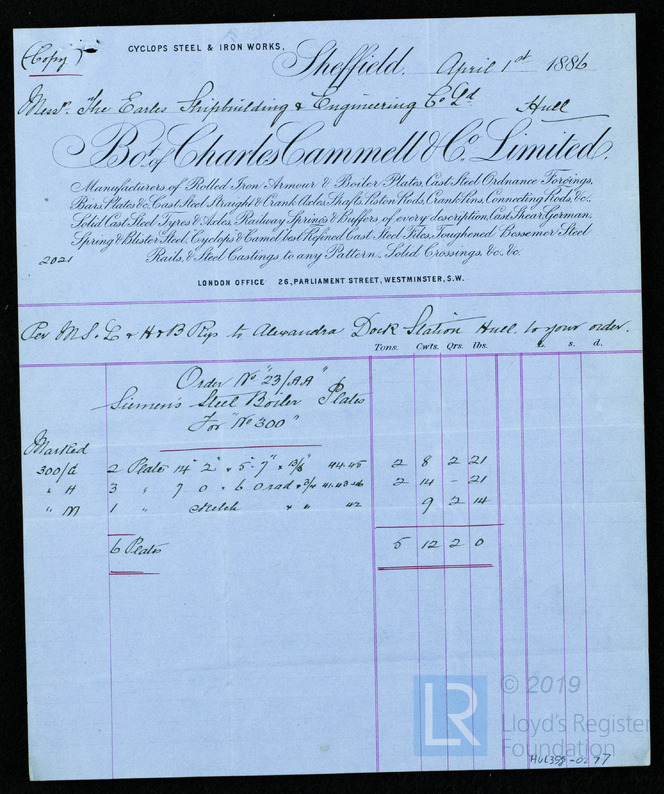 (Copy)
CYCLOPS STEEL & IRON WORKS,
Sheffield, April 1st 1886
Messrs. The Earles Shipbuilding & Engineering Co Ld Hull
Bot. of Charles Cammell & Co. Limited.
Manufacturers of Rolled Iron Armour & Boiler Plates, Cast Steel Ordnance Forgings,
Bars, Plates &c, Cast Steel Straight & Crank Axles, Shafts, Piston Rods, Crank Pins, Connecting Rods, &c.,
Solid Cast Steel Tyres & Axles, Railway Springs & Buffers of every description, Cast, Shear, German,
Spring & Blister Steel, Cyclops & Camel best Refined Cast Steel Files, Toughened Bessemer Steel
Rails, & Steel Castings to any Pattern, Solid Crossings, &c. &c.
2021
LONDON OFFICE 26, PARLIAMENT STREET, WESTMINSTER, S.W.
Per M S. L & H & B Rys to Alexandra Dock Station Hull. to your order.
Tons. Cwts. Qrs. lbs. £. s. d.
Order No "23/AA"
Siemens Steel Boiler Plates
For "No 300"
Marked
300/d 2 Plates 14' 2" x 5' 7" x 13/16 44.45 2 8 2 21
" H 3 " 7 0 x 6 0 rad x 3/4 41.43.46 2 14 - 21
" M 1 " sketch " " 42 9 2 14
6 Plates 5 12 2 0
LR
© 2019
Lloyd's Register
Foundation
HUL399-0277